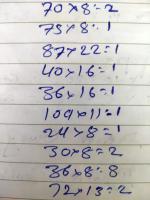 70×8=2
75×8=1
87×22=1
40×16=1
36×16=1
109×11=1
24×8=1
30×8=2
36×8=8
72×13=2